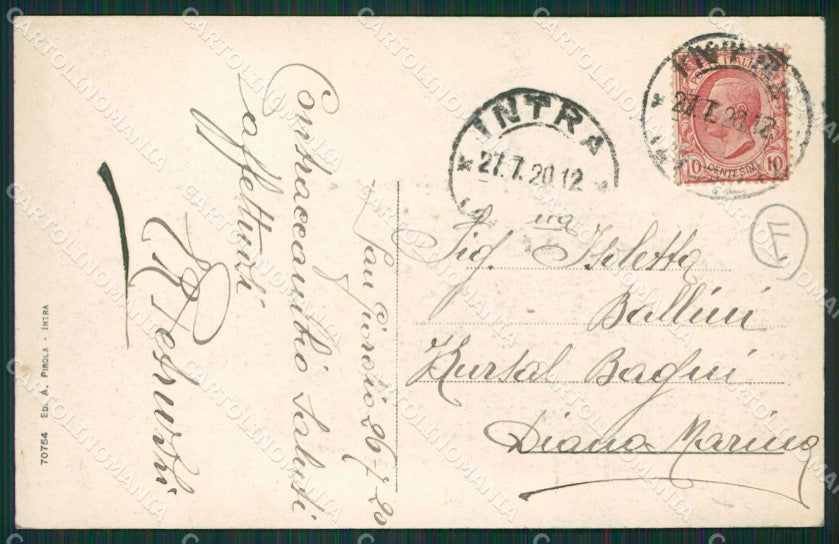 San Giorgio 26-7-20
Contraccambio saluti
affettuosi
INTRA
27.7.20.12
27.7.20.12
POSTE ITALIANE
10 CENTESIMI 10
Sig.na Isoletta
Ballini
Kursal Bagni
Diana Marina
70754 ED. A. PIROLA - INTRA
CARTOLINOMANIA